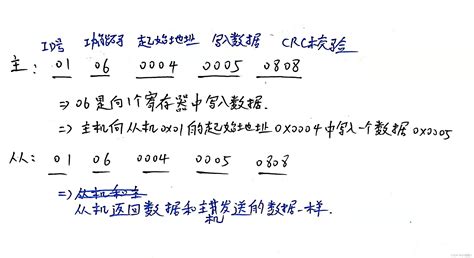 ID号 功能码 起始地址 写入数据 CRC校验
主: 01 06 0004 0005 0808
⇒ 06是向1个寄存器中写入数据.
⇒ 主机向从机0x01的起始地址0x0004中写入一个数据0x0005
从: 01 06 0004 0005 0808
⇒ 从机和主
从机返回数据和主机发送的数据一样.